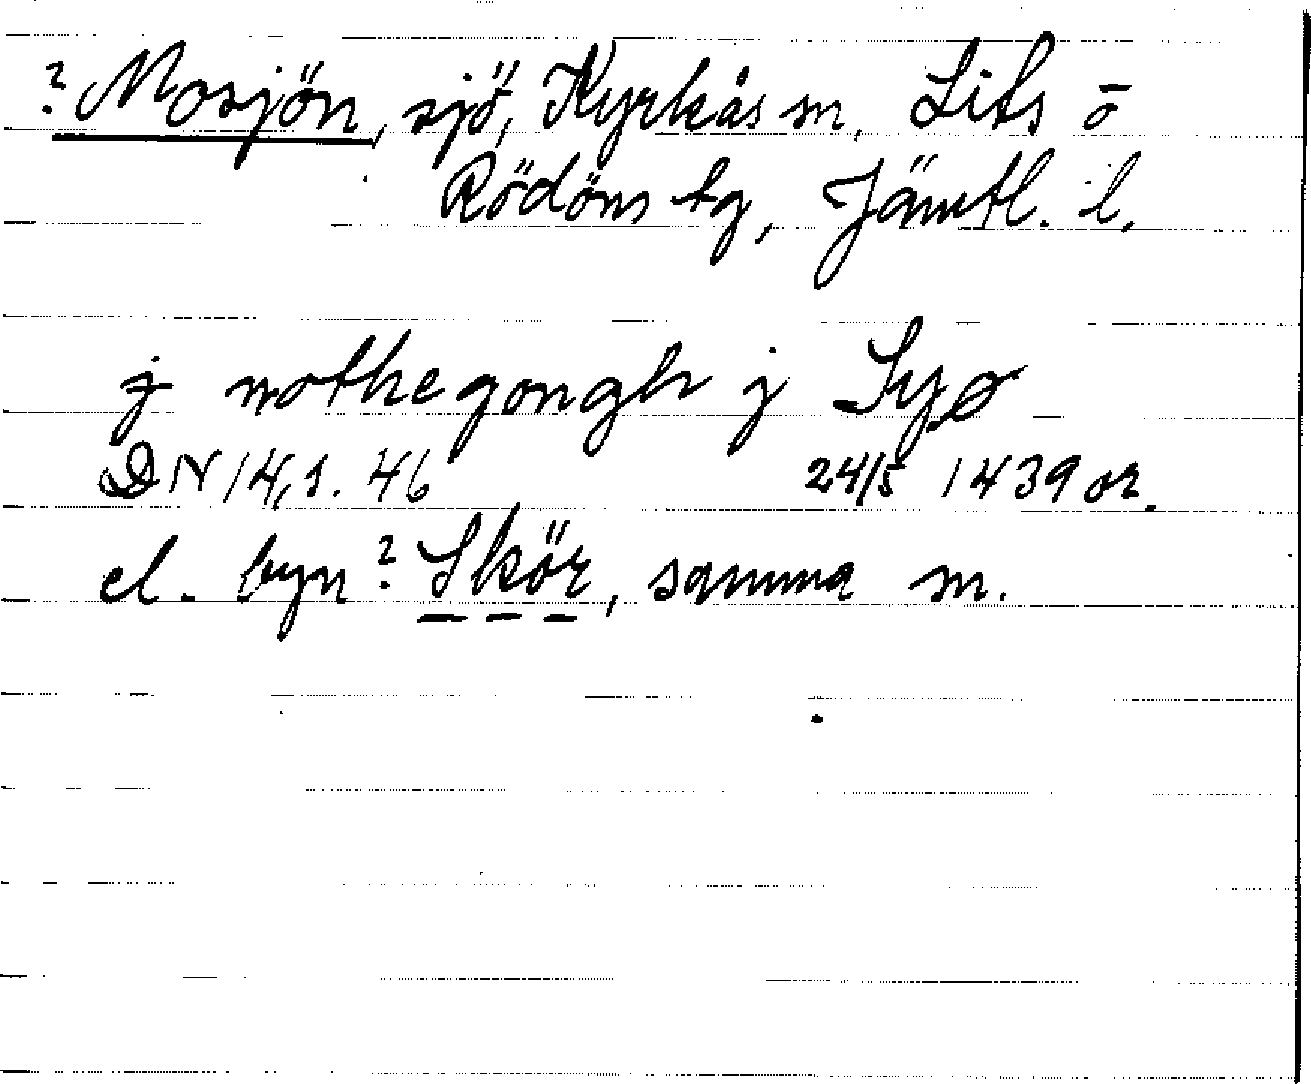 ? Mosjön, sjö, Kyrkås sn, Lits o
Rödöns tg, Jämtl. l.
j nothegongh j Syø
DN 14, s. 46 24/5 1439 or.
el. byn ? Skör, samma sn.